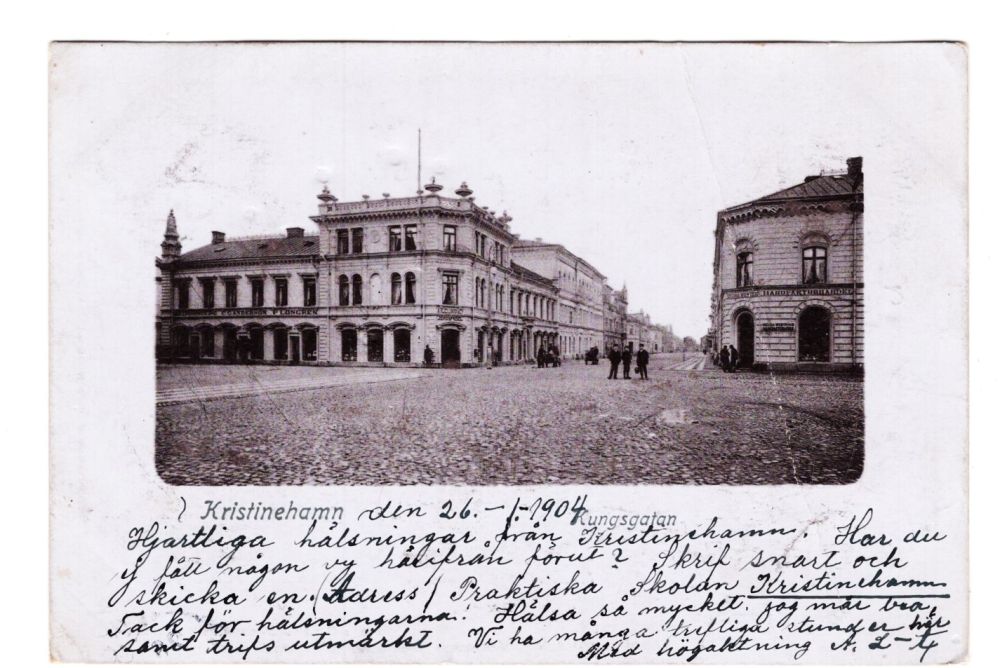 HANDFAKTURHANDEL
Kristinehamn den 26.-1-1904
Kungsgatan
Hjärtliga hälsningar från Kristinehamn. Har du
ej fått någon vy härifrån förut? Skrif snart och
skicka en. (Adress) Praktiska Skolan Kristinehamn
Tack för hälsningarna! Hälsa så mycket. jag mår bra,
samt trifs utmärkt. Vi ha många trefliga stunder här
Med högaktning A. L-